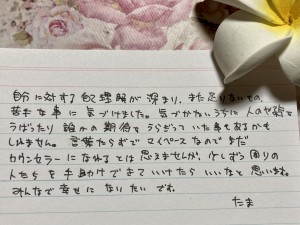 自分に対する自己理解が深まり、まだ足りないもの、
苦手な事に気づけました。気づかないうちに人のやる気
うばったり 誰かの期待をうらぎっていた事もあるかも
しれません。言葉たらずでマイペースなのでまだ
カウンセラーになれるとは思えませんが、少しずつ周りの
人たちを手助けできていけたらいいなと思います。
みんなで幸せになりたいです。
たま